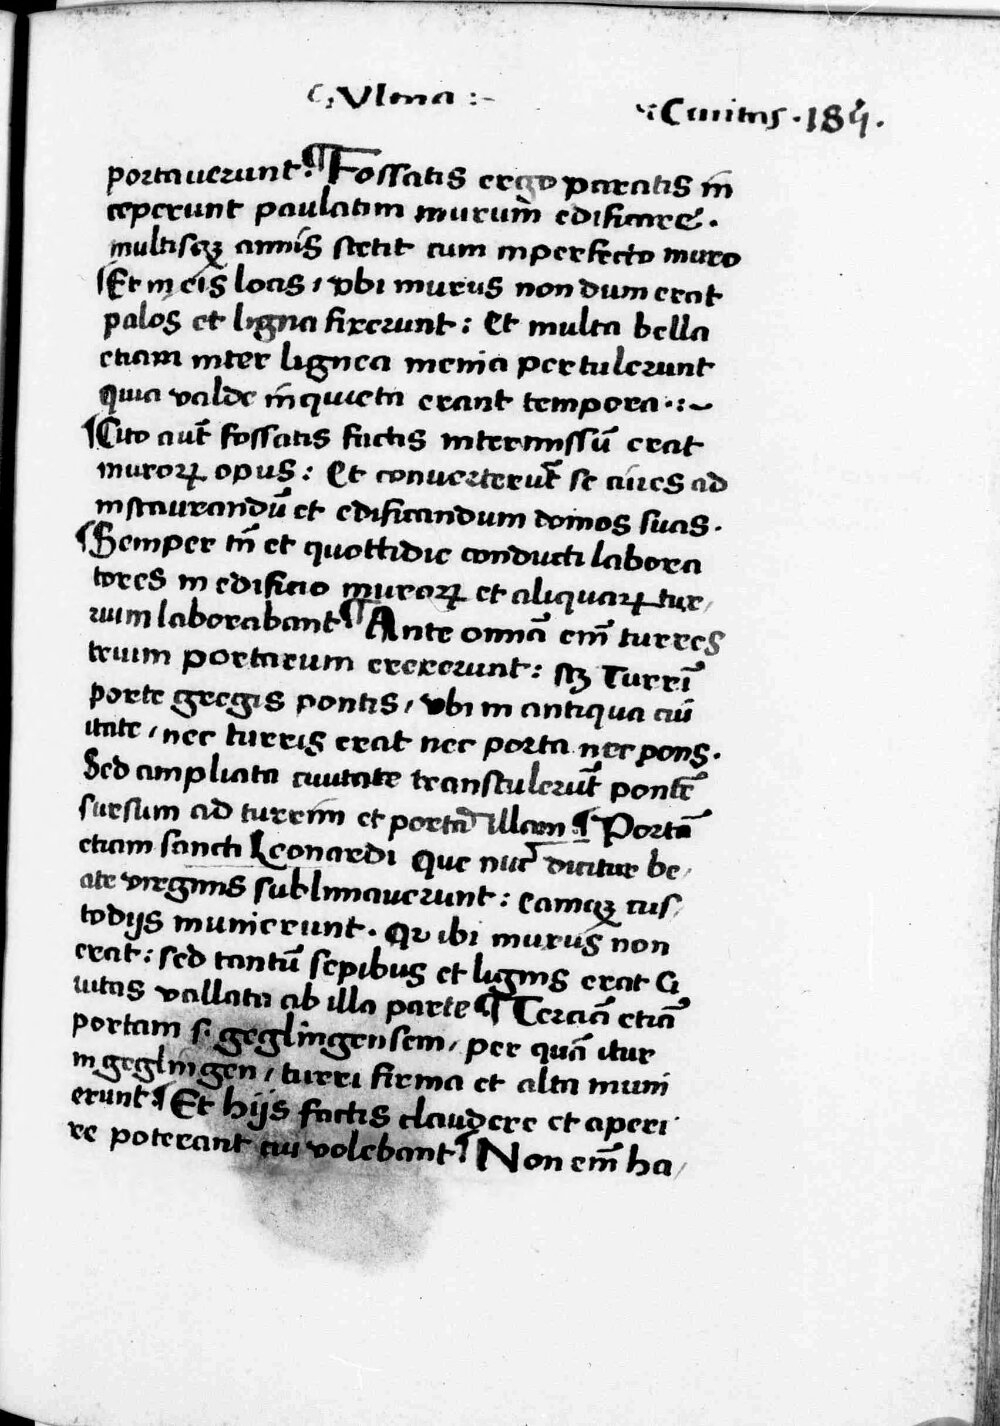 ¶ Vlma :~ ¶ Ciuitas · 184 ·
portauerunt. ¶ Fossatis ergo paratis in
ceperunt paulatim murum̄ edificare.
multisqꝫ annis stetit cum inperfecto muro
¶ Et in eis locis / vbi murus nondum erat
palos et ligna fixerunt : Et multa bella
etiam inter lignea menia pertulerunt
Quia valde inquieta erant tempora ·:~
¶ Cito aut̄ fossatis factis intermissū erat
muroꝝ opus : Et conuerterūt se ciues ad
instaurandū et edificandum domos suas.
¶ Semper tn̄ et quottidie conducti labora
tores in edificio muroꝝ et aliquaꝝ tur/
rium laborabant ¶ Ante omnia em̄ turres
trium portarum erexerunt : sꝫ Turrī
porte gregis pontis / vbi in antiqua ciui
itate / nec turris erat nec porta nec pons.
Sed ampliata ciuitate transtulerūt pontē
sursum ad turrim et portā illam. ¶ Portā
etiam sancti Leonardi Que nūc dicitur be/
ate virginis sublimauerunt : eamqꝫ cus/
todijs munierunt. Qr ibi murus non
erat : sed tantū sepibus et lignis erat Ci
uitas vallata ab illa parte ¶ Terciā etiā
portam s. geglingensem / per quā itur
in geglingen / turri firma et alta muni
erunt. ¶ Et hijs factis claudere et aperi
re poterant cui volebant ¶ Non em̄ ha/